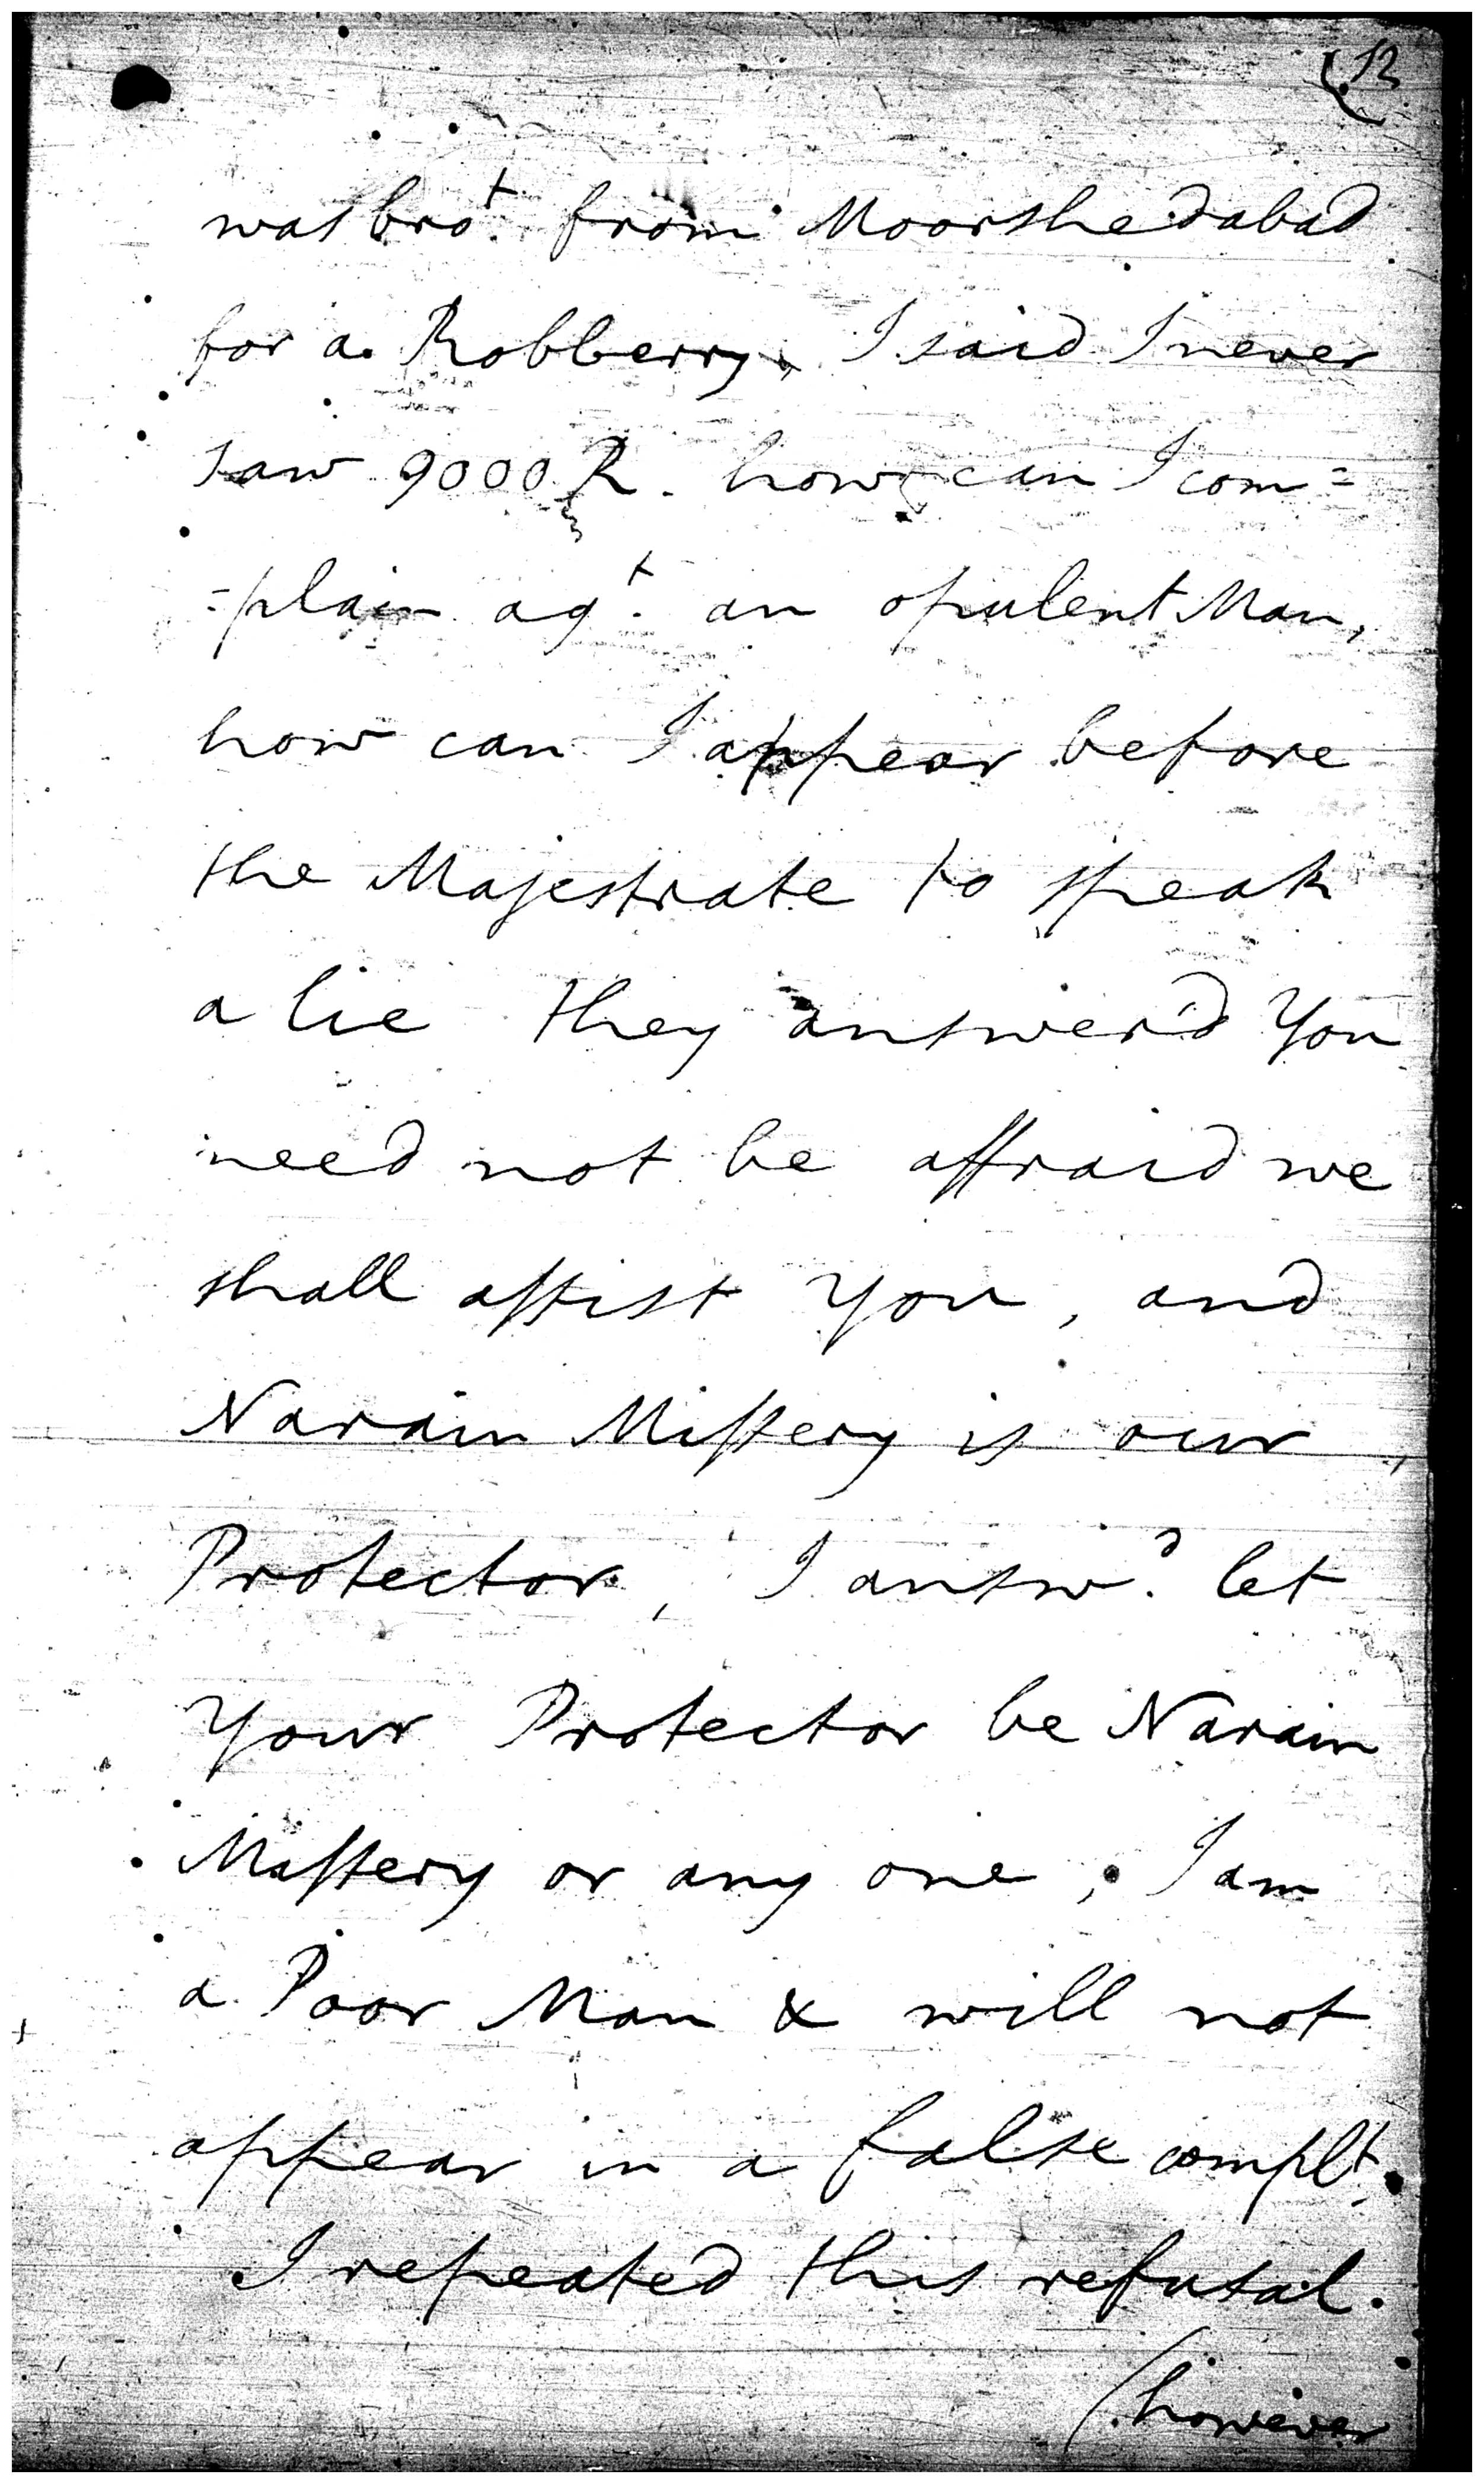 12
was bro.t from Moorshedabad
for a Robberry, I said I never
saw 9000 R. how can I com=
=plain ag.t an opulent Man,
how can I appear before
the Majestrate to speak
a lie they answer'd You
need not be affraid we
shall assist You, and
Narain Mistery is our
Protector, I answ.d let
Your Protector be Narain
Mistery or any one, I am
a Poor Man & will not
appear in a false complt.
I repeated this refusal.
(however